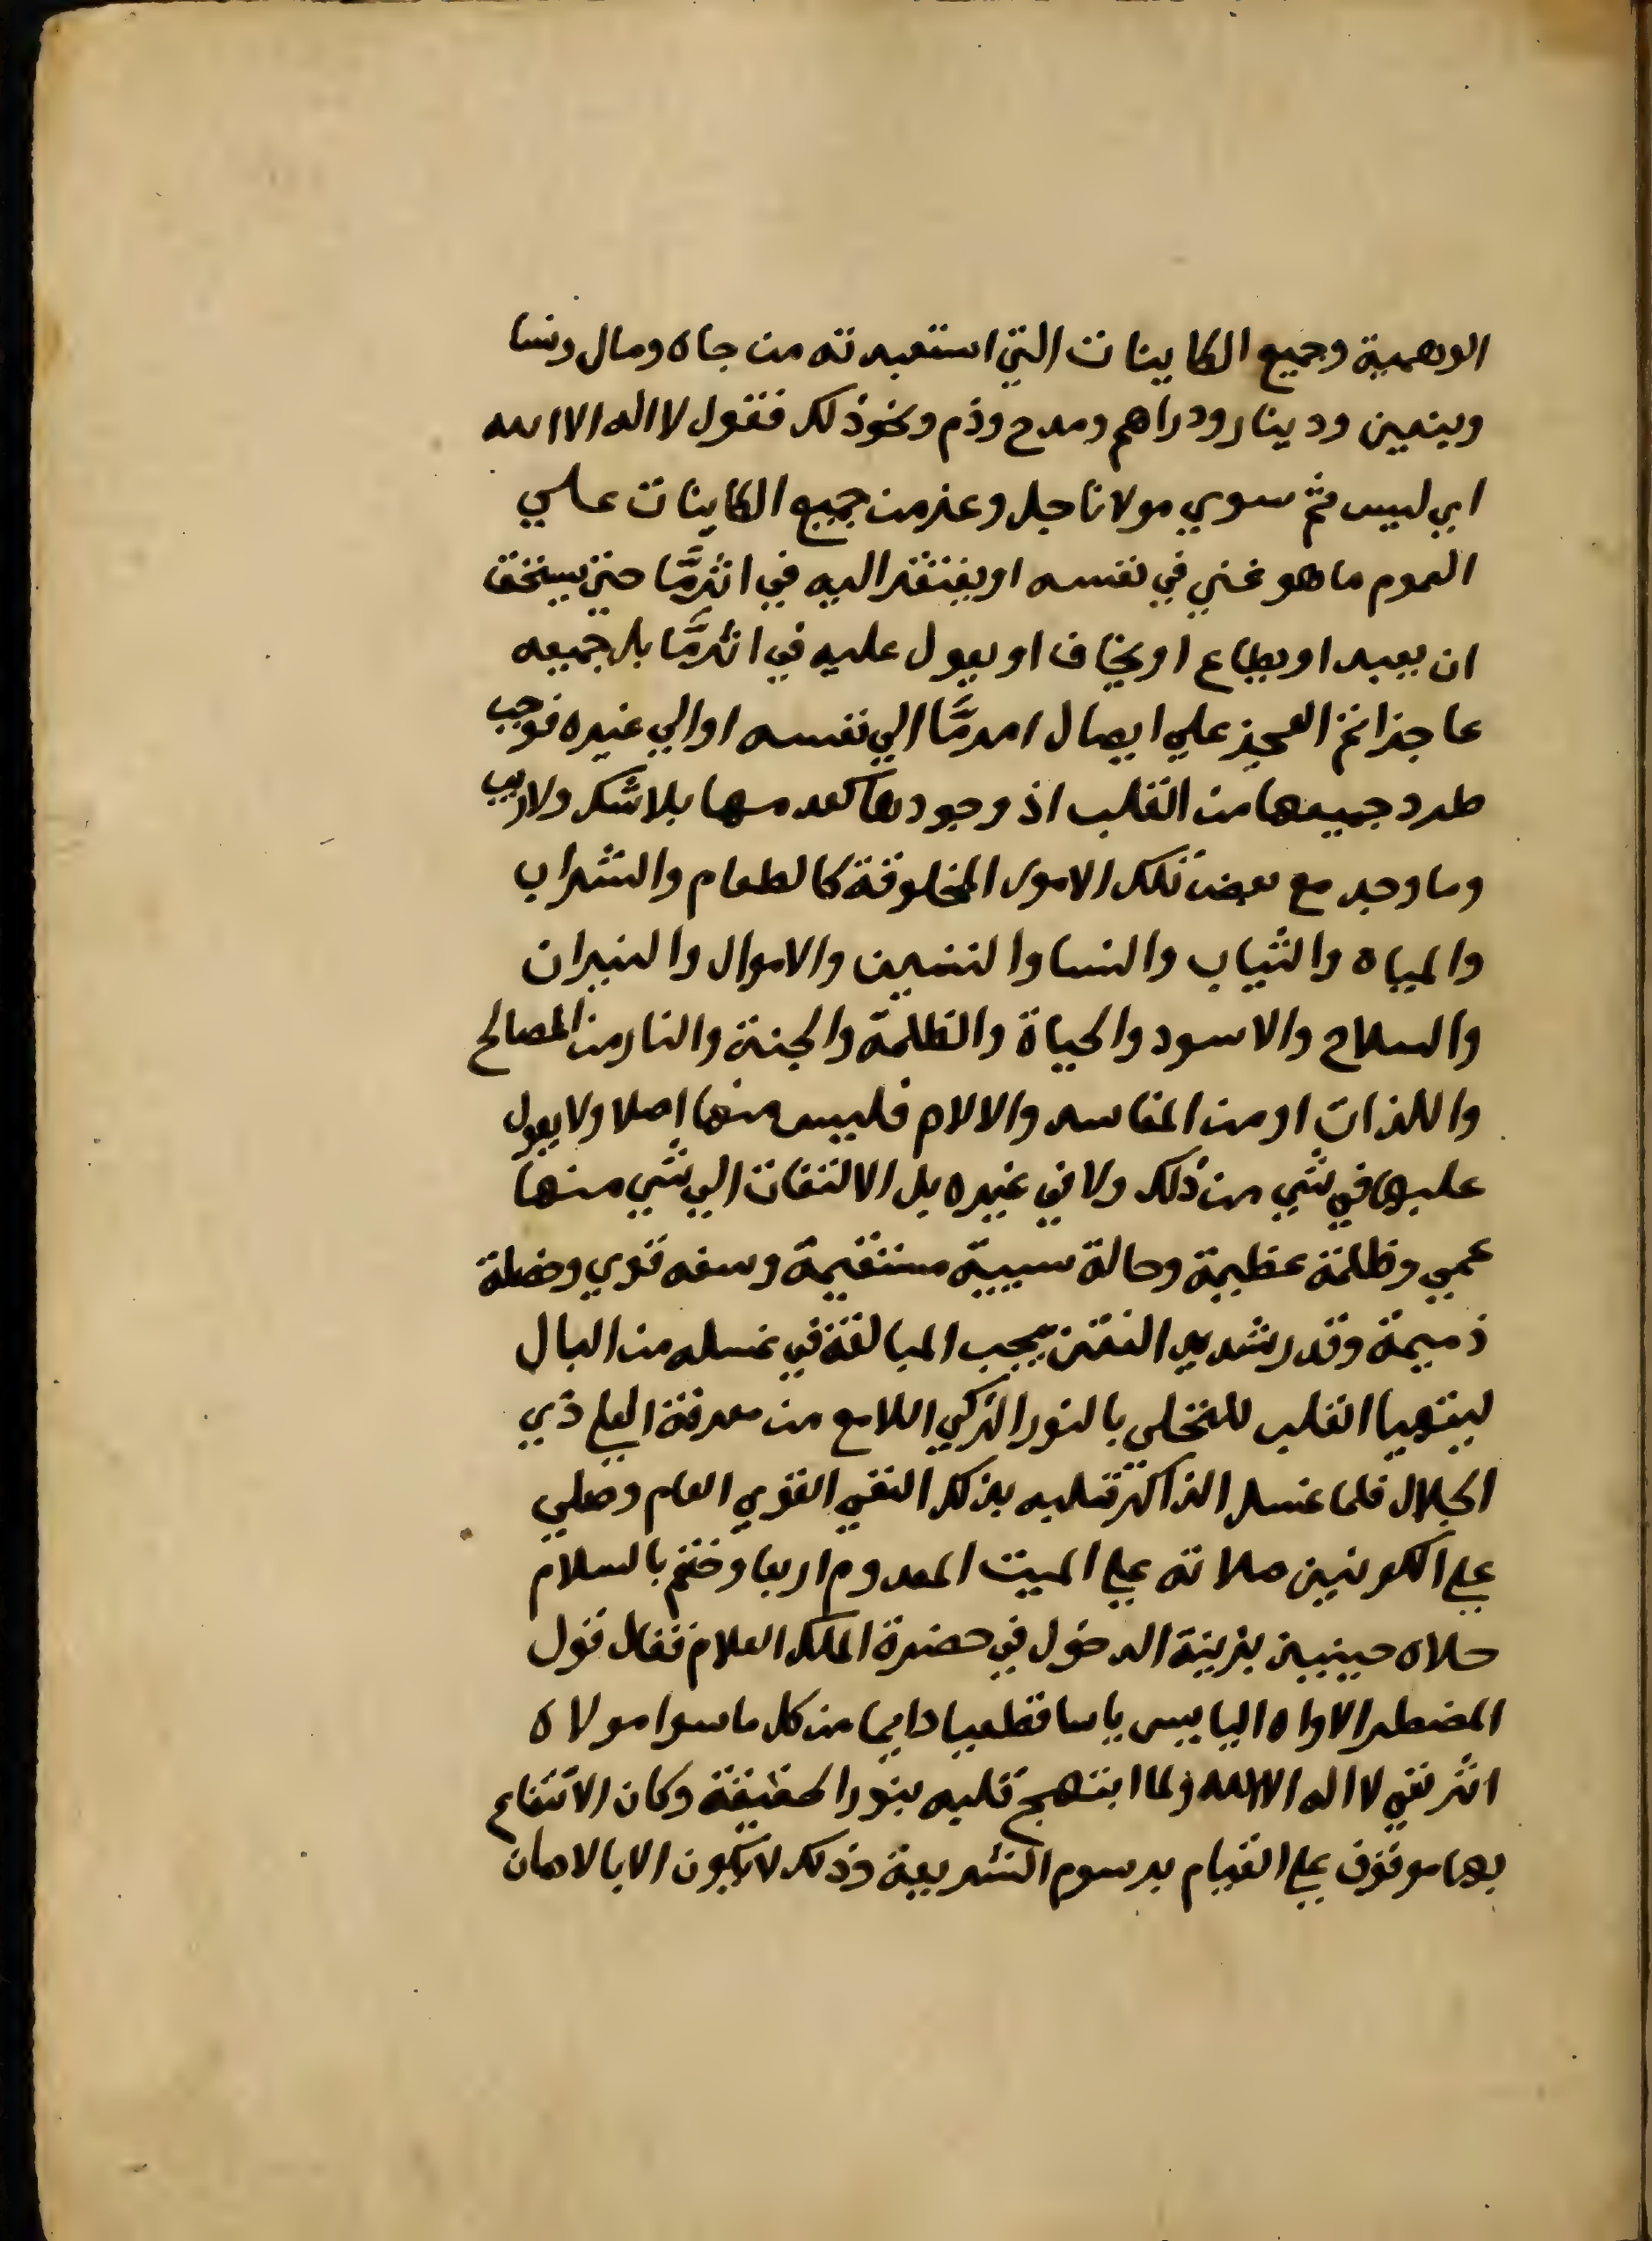 الوهمية وجميع الكاينات التي استعبدته من جاه ومال ونسا
وبنين ودينار ودراهم ومدح وذم ونحوذلك فقول لااله الاالله
اي ليس ثم سوي مولانا جل وعز من جميع الكاينات علي
العموم ما هو غني في نفسه او يفتقر اليه في اثر مَّا حتي يستحق
ان يعبد او يطاع او يخاف او يعول عليه في اثر مَّا بل جميعه
عاجز اتم العجز علي ايصال امر مَّا الي نفسه او الي غيره فوجب
طرد جميعها من القلب اذ وجودها كعدمها بلا شك ولا ريب
وما وجد مع بعض تلك الامور المخلوقة كالطعام والشراب
والمياه والثياب والنسا والبنين والاموال والنيران
والسلاح والاسود والحياة والظلمة والجنة والنار من المصالح
واللذات او من المفاسد والالام فليس منها اصلا ولا يعول
عليها في شي من ذلك ولا في غيره بل الالتفات الي شي منها
عمي وظلمة عظيمة وحالة سيية مستقيمة وسفه قوي وخصلة
ذميمة وقدر شديد النتن يجب المبالغة في غسله من البال
ليتهيا القلب للتحلي بالنور الزكي اللامع من معرفة العلي ذي
الجلال فلما غسل الذاكر قلبه بذلك النفي القوي العام وصلي
علي الكونين صلاته علي الميت المعدوم اربعا وختم بالسلام
حلاه حينيين بزينة الدخول في حضرة الملك العلام فقال قول
المضطر الاواه اليايس ياسا قطعيا دايما من كل ما سوا مولاه
اثر نفي لا اله الاالله ولما ابتهج قلبه بنور الحقيقة وكان الانتفاع
بها موقوف علي القيام برسوم الشريعة وذلك لا يكون الا بالادمان